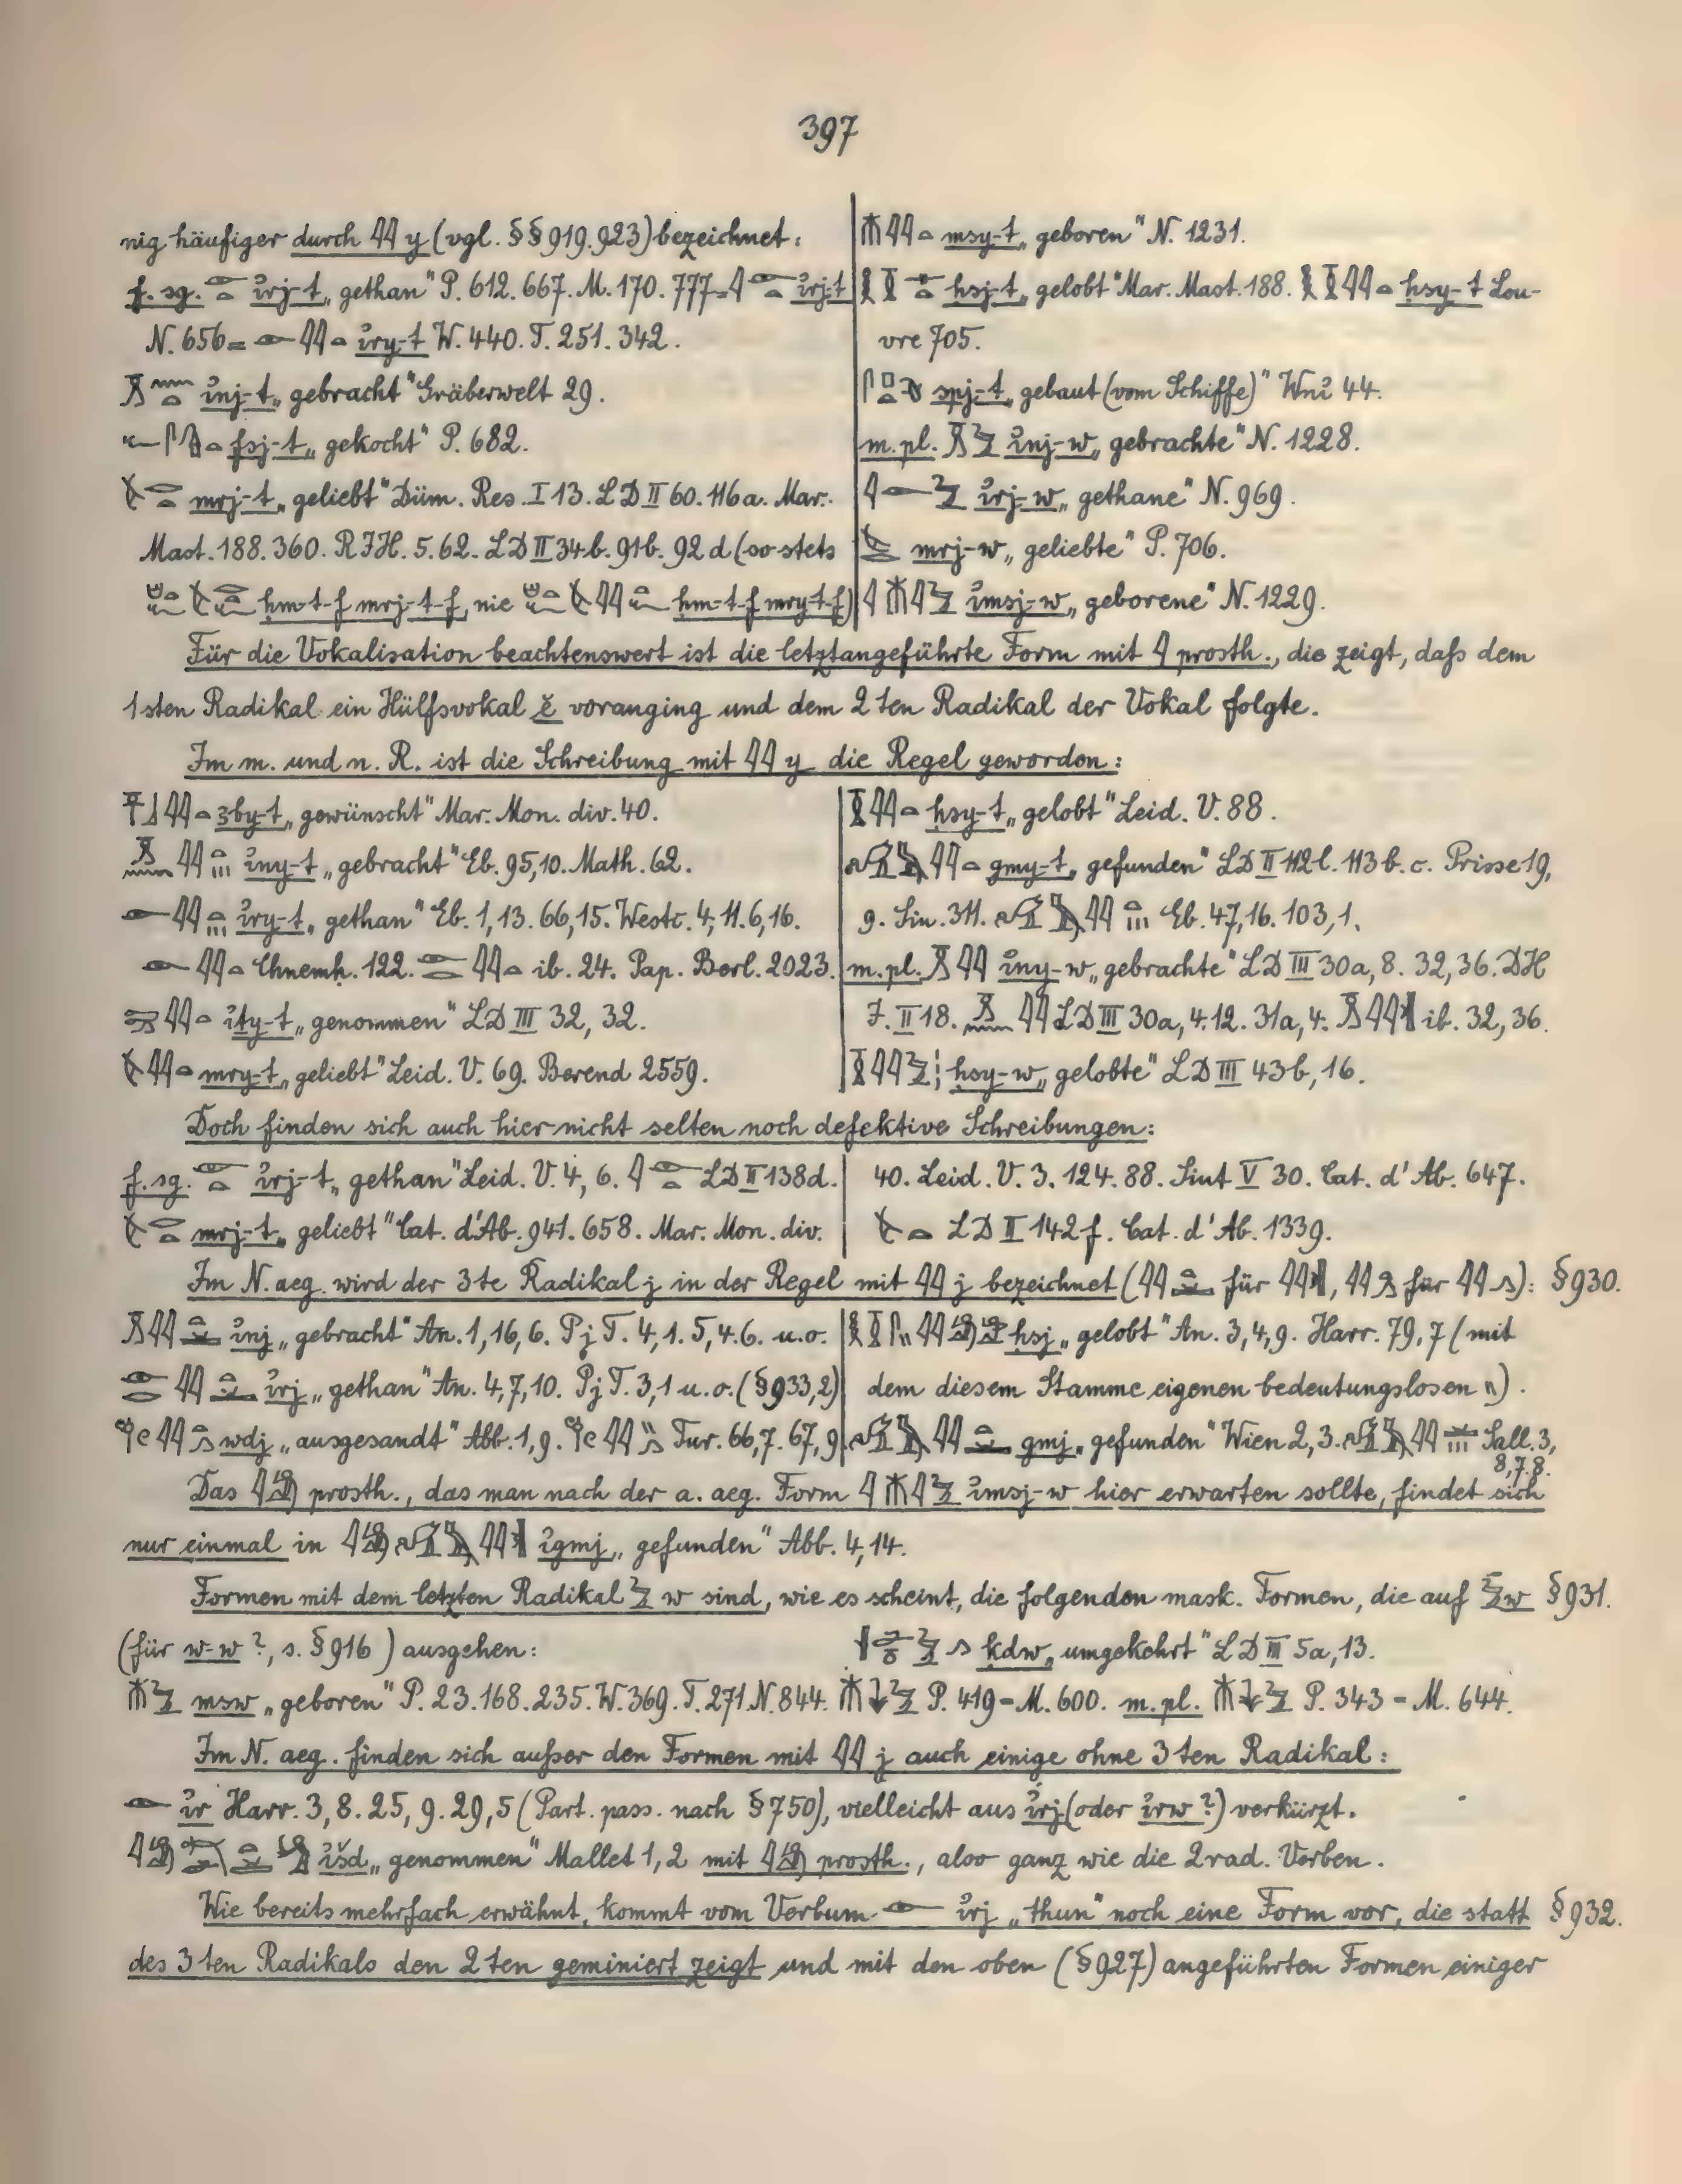 397
nig häufiger durch 𓇌 y (vgl. §§ 919. 923) bezeichnet:
f. sg. 𓁹𓏏 i҆rj-t „gethan" P. 612. 667. M. 170. 777 = 𓇋𓁹𓏏 i҆rj-t
N. 656 = 𓁹𓇌𓏏 i҆ry-t W. 440. T. 251. 342.
i҆nj-t „gebracht" Gräberwelt 29.
fsj-t „gekocht" P. 682.
mrj-t „geliebt" Düm. Res. I 13. LD II 60. 116a. Mar.
Mast. 188. 360. RIH. 5. 62. LD II 34b. 91b. 92d (so stets
ḥm-t-f mrj-t-f, nie ḥm-t-f mry-t-f)
msy-t „geboren" N. 1231.
ḥsj-t „gelobt" Mar. Mast. 188. ḥsy-t Lou-
vre 705.
spj-t „gebaut (vom Schiffe)" Wni҆ 44.
m. pl. i҆nj-w „gebrachte" N. 1228.
i҆rj-w „gethane" N. 969.
mrj-w „geliebte" P. 706.
i҆msj-w „geborene" N. 1229.
Für die Vokalisation beachtenswert ist die letztangeführte Form mit 𓇋 prosth., die zeigt, daſs dem
1sten Radikal ein Hülfsvokal ĕ voranging und dem 2ten Radikal der Vokal folgte.
Im m. und n. R. ist die Schreibung mit 𓇌 y die Regel geworden:
ꜣby-t „gewünscht" Mar. Mon. div. 40.
i҆ny-t „gebracht" Eb. 95,10. Math. 62.
i҆ry-t „gethan" Eb. 1,13. 66,15. Westc. 4,11. 6,16.
𓁹𓇌𓏏 Chnemḥ. 122. 𓁹𓂋𓇌𓏏 ib. 24. Pap. Berl. 2023.
i҆ty-t „genommen" LD III 32, 32.
mry-t „geliebt" Leid. V. 69. Berend 2559.
ḥsy-t „gelobt" Leid. V. 88.
gmy-t „gefunden" LD II 112l. 113b. c. Prisse 19,
9. Sin. 311. Eb. 47,16. 103,1.
m. pl. i҆ny-w „gebrachte" LD III 30a, 8. 32, 36. DH
I. II 18. LD III 30a, 4. 12. 31a, 4. ib. 32, 36.
ḥsy-w „gelobte" LD III 43b, 16.
Doch finden sich auch hier nicht selten noch defektive Schreibungen:
f. sg. 𓁹𓏏 i҆rj-t „gethan" Leid. V. 4, 6. 𓇋𓁹𓏏 LD II 138d.
mrj-t „geliebt" Cat. d'Ab. 941. 658. Mar. Mon. div.
40. Leid. V. 3. 124. 88. Siut V 30. Cat. d'Ab. 647.
LD II 142f. Cat. d'Ab. 1339.
Im N. aeg. wird der 3te Radikal j in der Regel mit 𓇌 j bezeichnet (𓇌 für 𓇌, 𓇌 für 𓇌𓂻): § 930.
i҆nj „gebracht" An. 1, 16, 6. PjT. 4, 1. 5, 4. 6. u. o.
i҆rj „gethan" An. 4, 7, 10. PjT. 3, 1 u. o. (§ 933, 2)
wdj „ausgesandt" Abb. 1, 9. Tur. 66, 7. 67, 9
ḥsj „gelobt" An. 3, 4, 9. Harr. 79, 7 (mit
dem diesem Stamme eigenen bedeutungslosen \\).
gmj „gefunden" Wien 2, 3. Sall. 3,
8, 7. 8.
Das prosth., das man nach der a. aeg. Form i҆msj-w hier erwarten sollte, findet sich
nur einmal in i҆gmj „gefunden" Abb. 4, 14.
Formen mit dem letzten Radikal w sind, wie es scheint, die folgenden mask. Formen, die auf w § 931.
(für w-w ?, s. § 916) ausgehen:
ḳdw „umgekehrt" LD III 5a, 13.
msw „geboren" P. 23. 168. 235. W. 369. T. 271. N. 844. P. 419 = M. 600. m. pl. P. 343 = M. 644.
Im N. aeg. finden sich auſser den Formen mit 𓇌 j auch einige ohne 3ten Radikal:
𓁹 i҆r Harr. 3, 8. 25, 9. 29, 5 (Part. pass. nach § 750), vielleicht aus i҆rj (oder i҆rw ?) verkürzt.
i҆šd „genommen" Mallet 1, 2 mit prosth., also ganz wie die 2rad. Verben.
Wie bereits mehrfach erwähnt, kommt vom Verbum 𓁹 i҆rj „thun" noch eine Form vor, die statt § 932.
des 3ten Radikals den 2ten geminiert zeigt und mit den oben (§ 927) angeführten Formen einiger